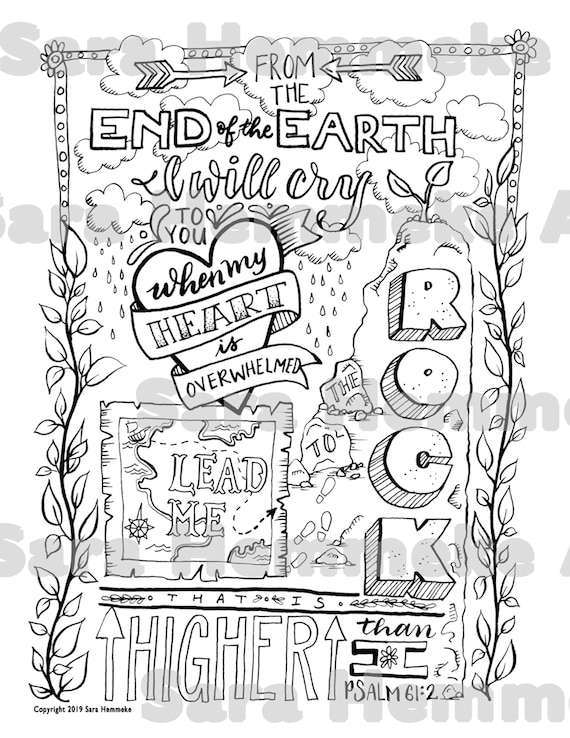 Sara Hemmeke A
FROM
THE
END of the EARTH
I will cry
TO
YOU
when my
HEART
is
OVERWHELMED
LEAD
ME
TO
THE
ROCK
THAT IS
HIGHER than
I
PSALM 61:2
Copyright 2019 Sara Hemmeke